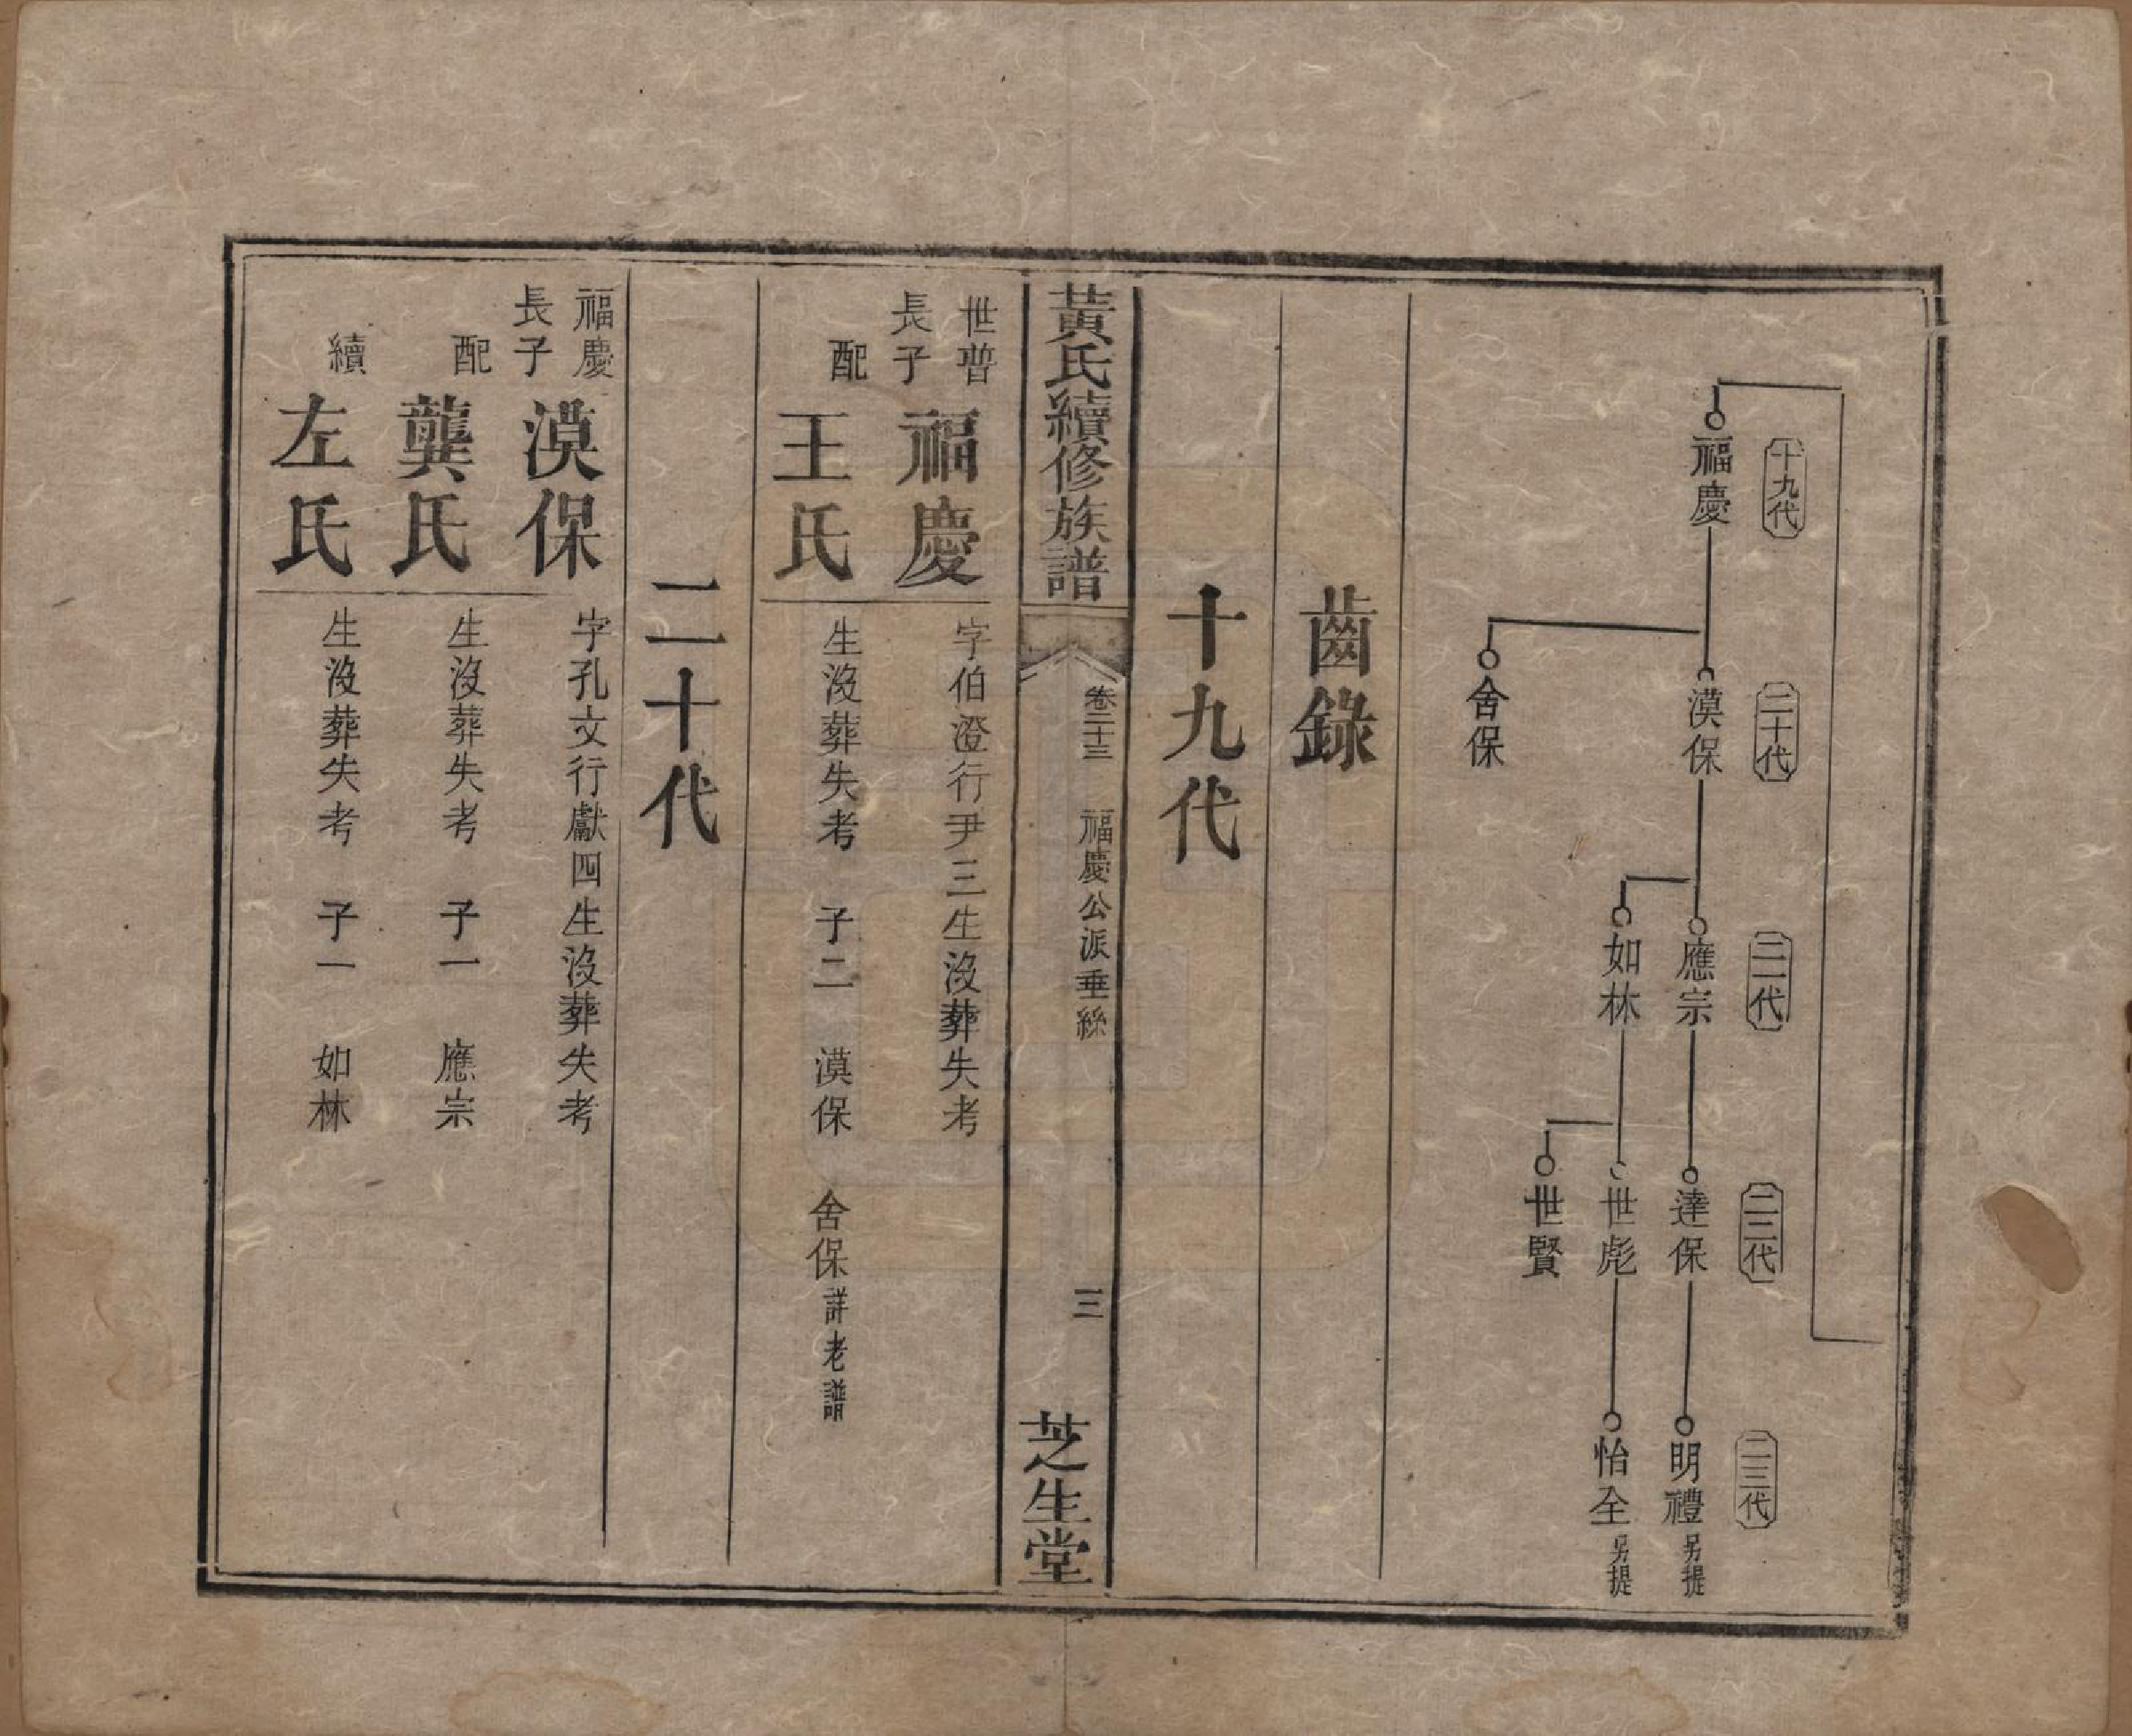 十九代
福慶
二十代
漠保
舍保
二一代
應宗
如林
二二代
達保
世彪
世賢
二三代
明禮 另提
怡全 另提
齒錄
十九代
黃氏續修族譜
卷二十三
福慶公派垂絲
三
芝生堂
世普
長子
福慶
字伯澄行尹三生沒葬失考
配
王氏
生沒葬失考 子二 漠保 舍保詳老譜
二十代
福慶
長子
漠保
字孔文行獻四生沒葬失考
配
龔氏
生沒葬失考 子一 應宗
續
左氏
生沒葬失考 子一 如林